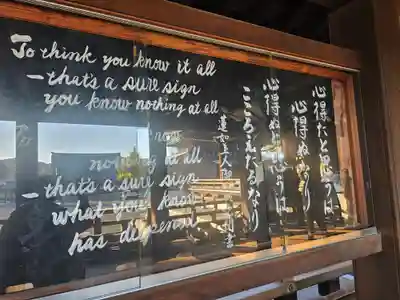 To think you know it all
—that's a sure sign
you know nothing at all
To know
nothing at all
—that's a sure sign
what you know
has deepened
心得たと思うは
心得ぬなり
心得ぬと思うは
こころえたるなり
蓮如上人御